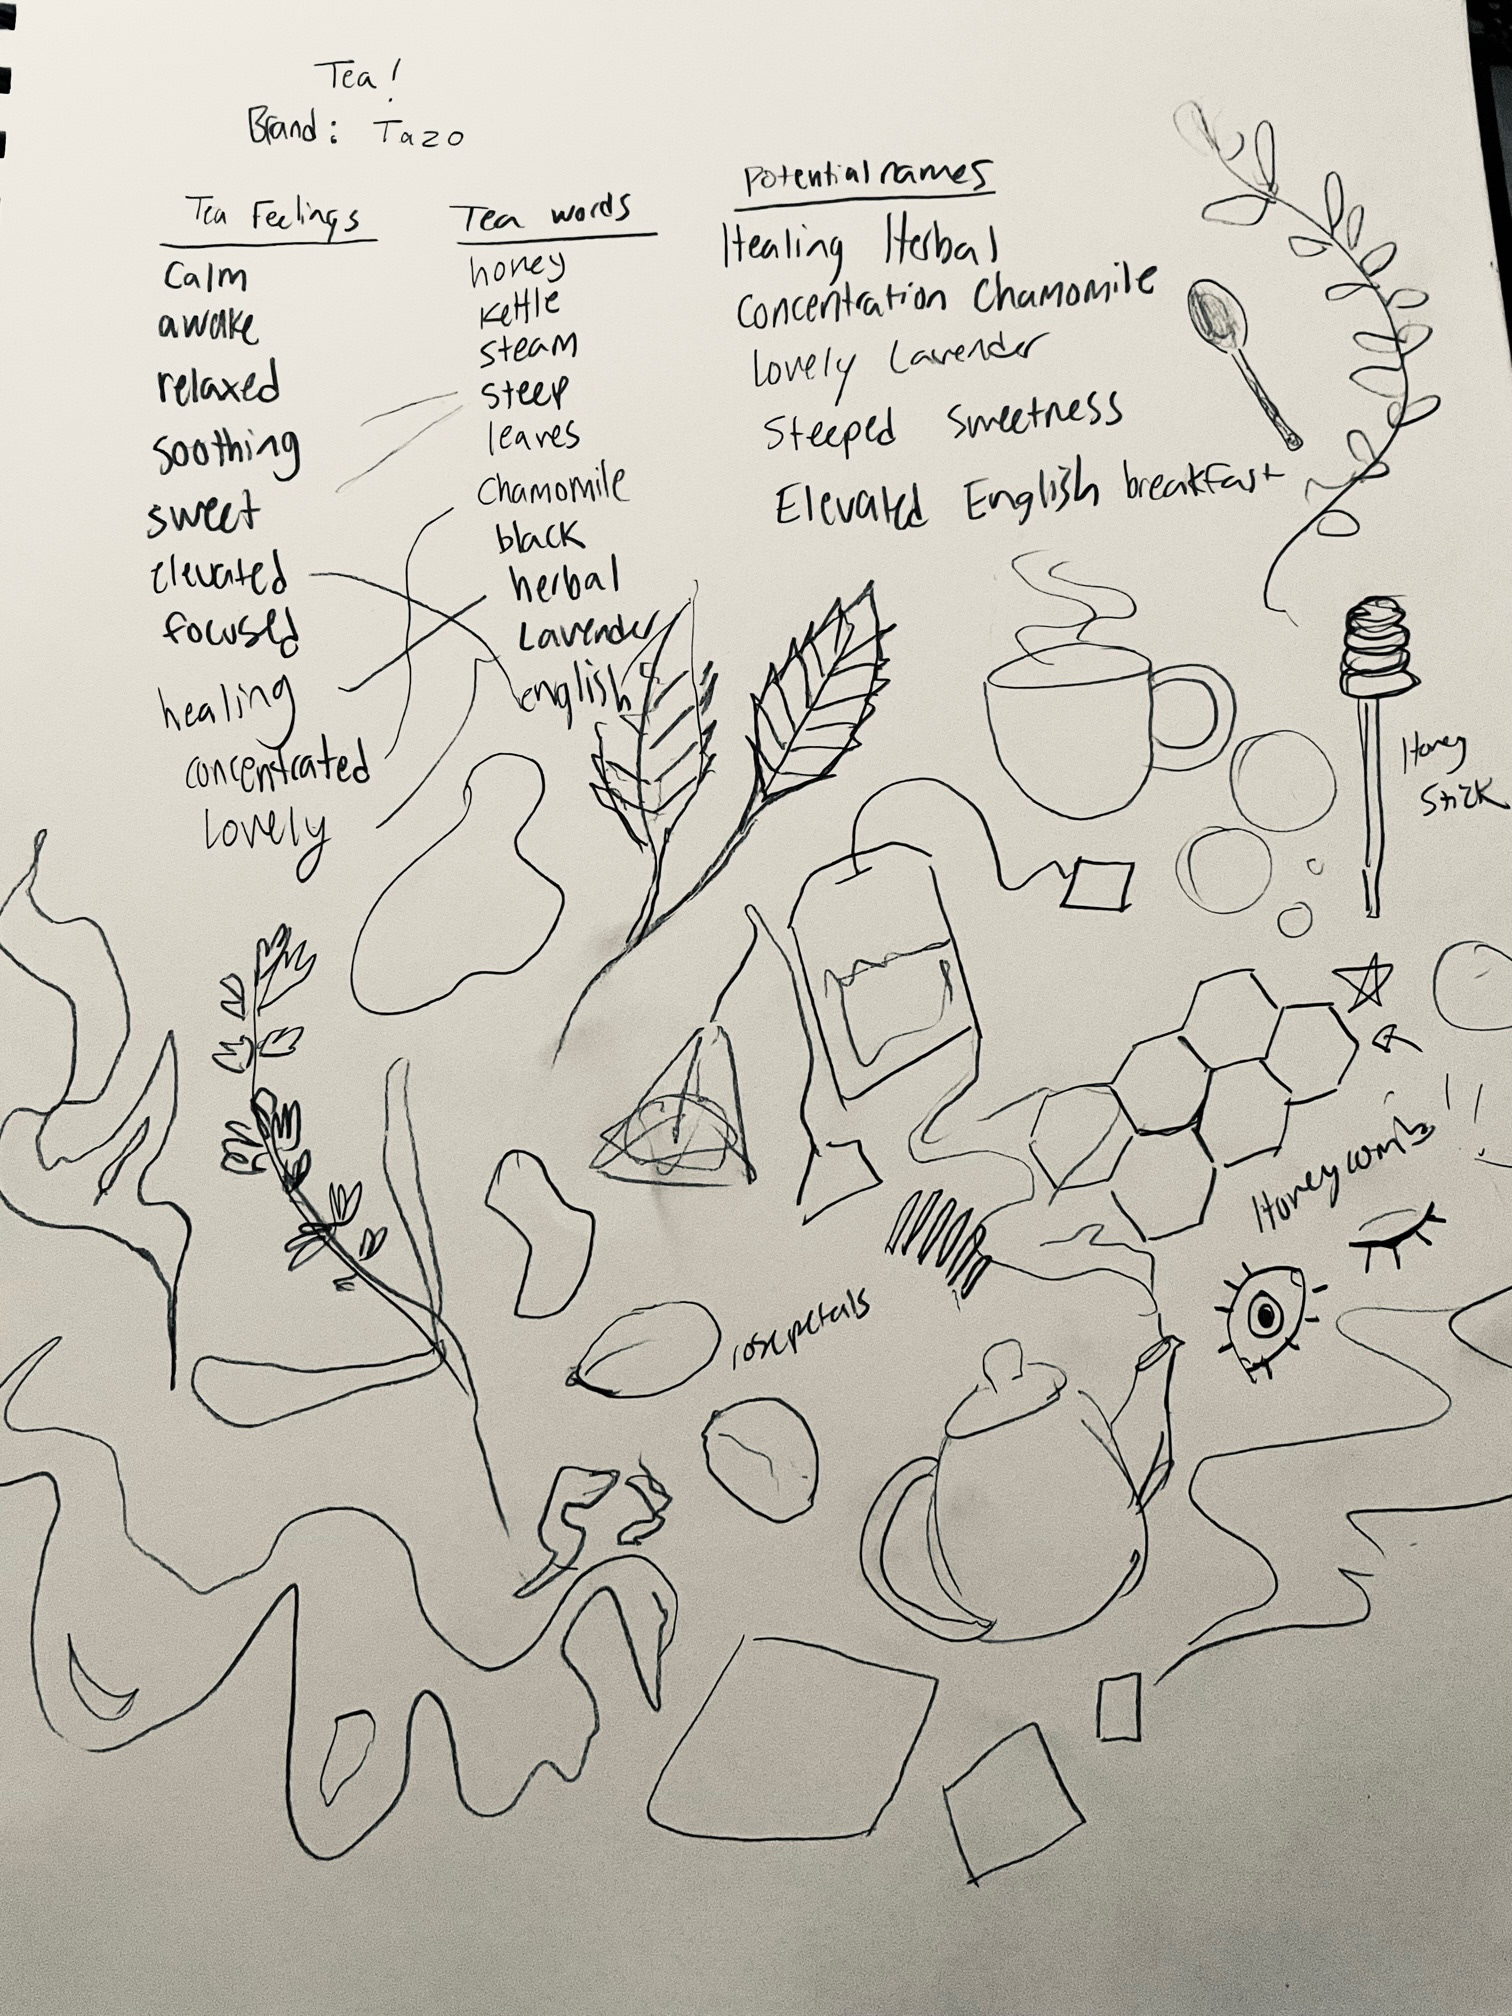 Tea!
Brand: Tazo
Tea Feelings
Calm
awake
relaxed
soothing
sweet
elevated
focused
healing
concentrated
Lovely
Tea words
honey
kettle
steam
steep
leaves
Chamomile
black
herbal
Lavender
english
Potential names
Healing Herbal
Concentration Chamomile
Lovely Lavender
Steeped Sweetness
Elevated English breakfast
Honey
Stick
Honeycombs!!
rose petals